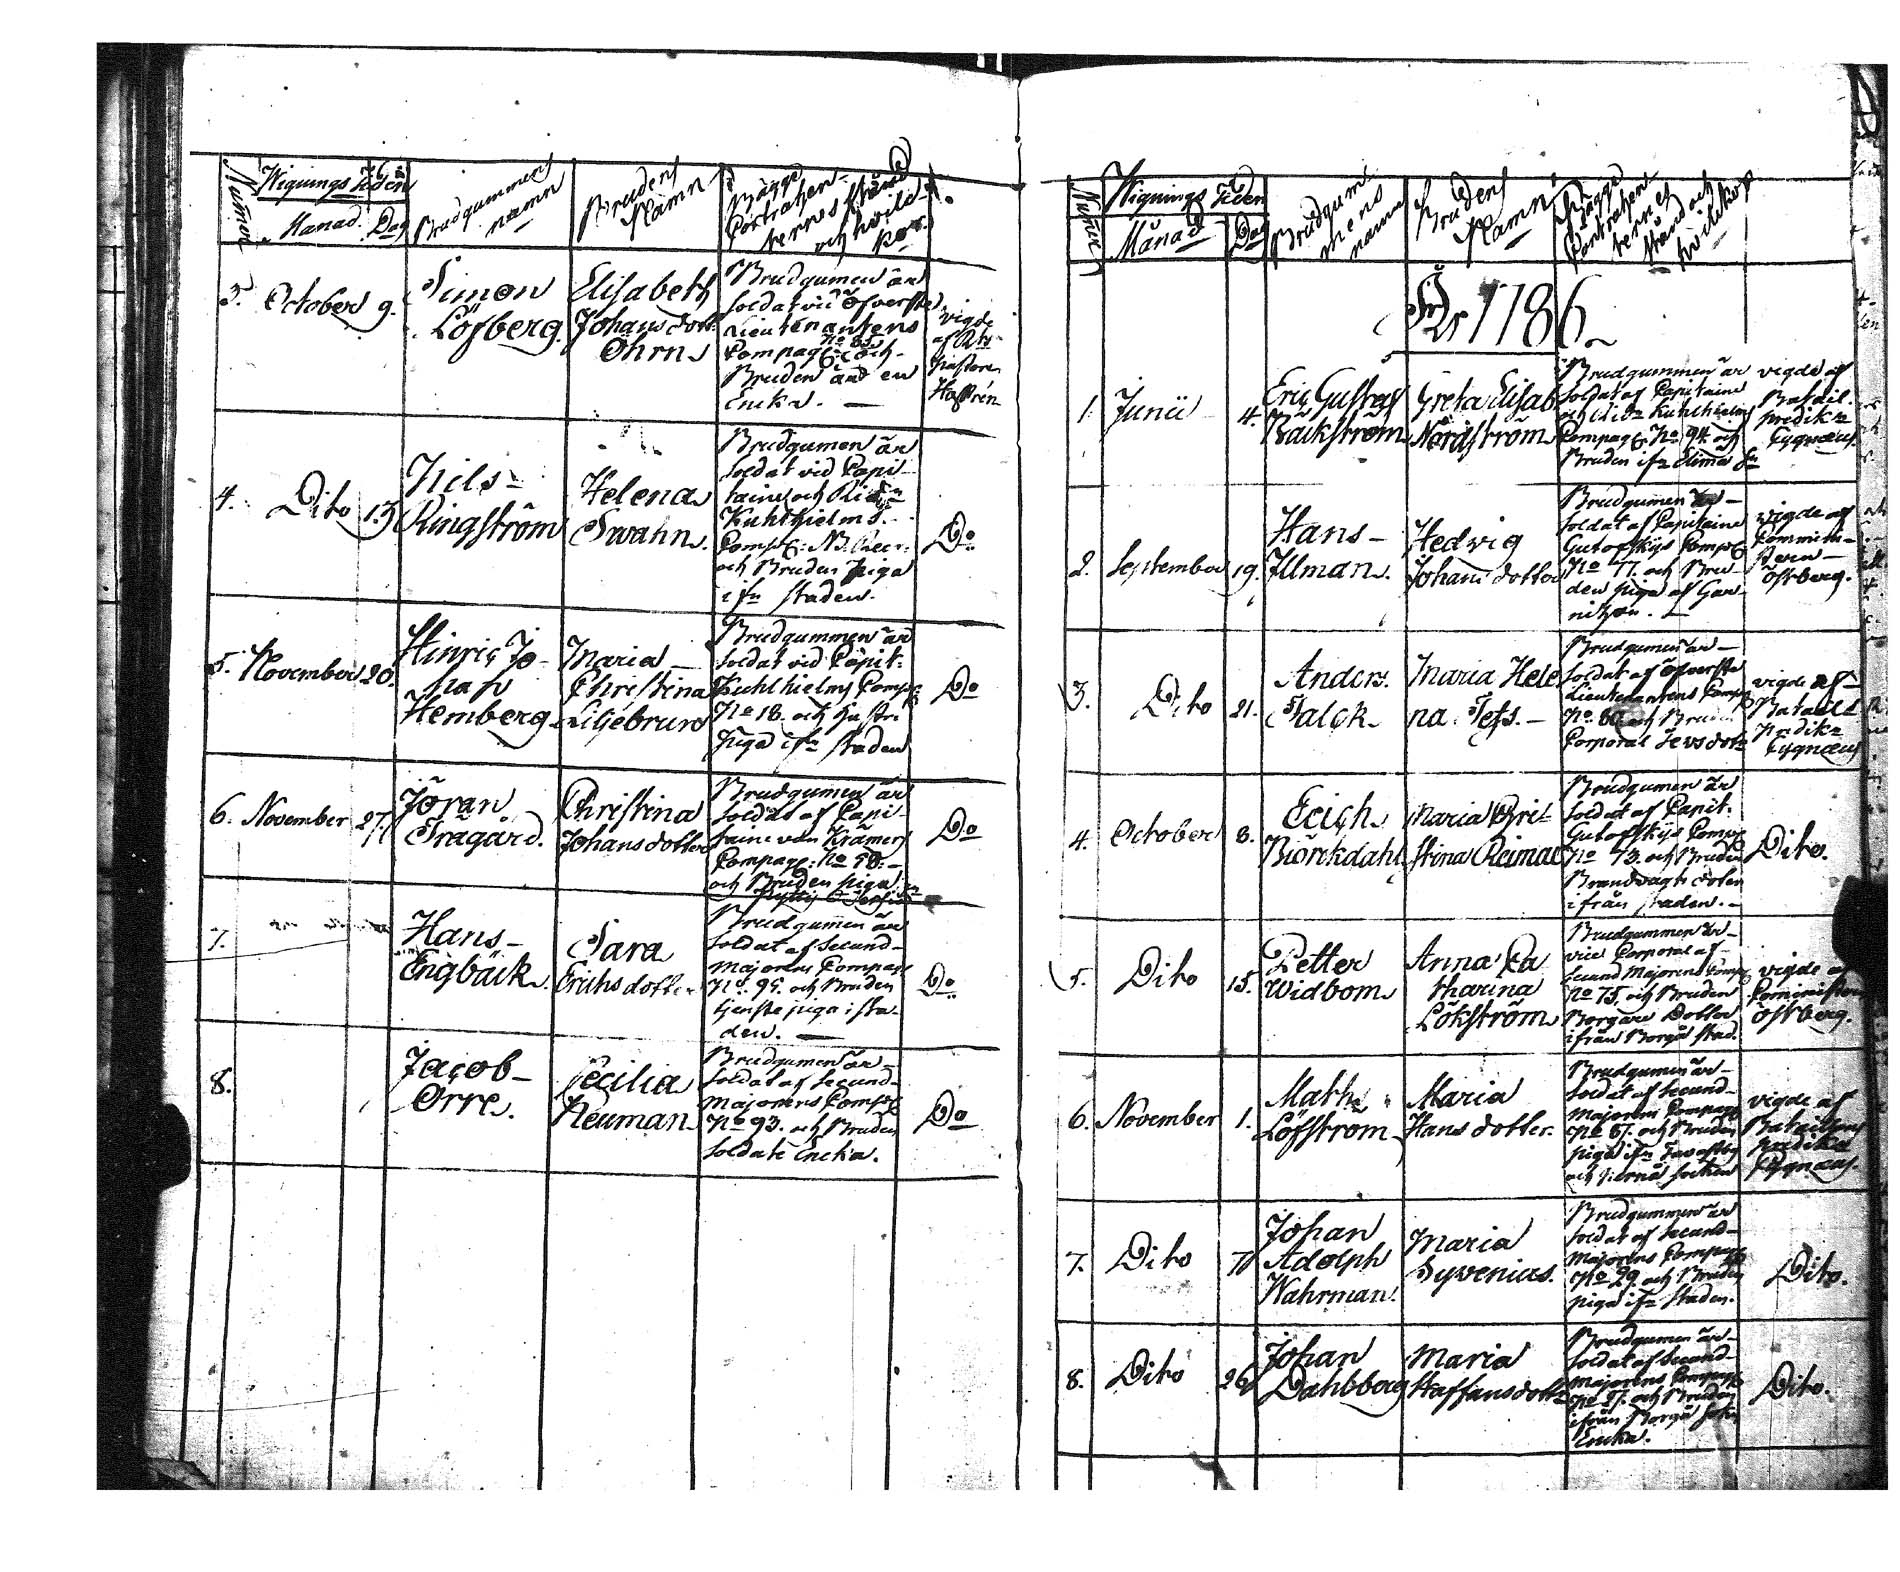 Numer
Wignings Tiden
Manad. Dag
Brudgummens
namn
Brudens
Namn
Bägge
Contrahen-
ternes stånd
och hvild-
kor.
3. October 9.
Simon
Löfberg.
Elisabeth
Johans dott
Öhrn
Brudgumen är
soldat vid Öfverste
Lieutenantens
Compag: No 85. och
Bruden änd en
Encka. —
vigde
af
Pastoren
Hastrén
4. Dito 13
Nils-
Ringström
Helena
Swahn.
Brudgumen är
soldat vid Capi-
taine och Ridn
Kuhlhielms.
Comp:
och Bruden piga
ifn staden.
Do
5. November 20.
Hinric Jo-
han
Hemberg
Maria
Christina
Liljebrun
Brudgummen är
soldat vid Capit:
Kuhlhielms Comp:
No 18. och
Piga ifn staden
Do
6. November 27.
Jöran
Trägård.
Christina
Johansdotter
Brudgumen är
soldat af Capi-
taine von Krämers
Compag: No 50. —
och Bruden piga
Do
7.
Hans-
Engbäck.
Sara
Erichs dotter
Brudgumen är
soldat af Secund-
Majorens Compag
No 95. och Bruden
tjenste piga i sta-
den. —
Do
8.
Jacob-
Orre.
Cecilia
Neuman
Brudgumen är
soldat af Secund-
Majorens Comp:
No 93. och Bruden
soldate Encka.
Do
Numer
Wignings Tiden
Månad Dag
Brudgum
mens
namn
Brudens
Namn
Bägge
Contrahen
ternes
stånd och
hvilkor
År 1786
1. Junii 4.
Eric Gustaf
Bäckström
Greta Elisab.
Nordström
Brudgummen är
soldat af Capitaine
och Ridn Kuhlhielms
Compag: No 94. och
Bruden ifn Elimä sn
vigde af
Batail.
predikn
Cygnæus.
2. September 19.
Hans-
Illman.
Hedvig
Johans dotter
Brudgumen är —
soldat af Capitaine
Gutofskijs Comp:
No 77. och Bru-
den piga af Gar-
nizon. —
vigde af
Comminis-
teren —
Östberg.
3. Dito 21.
Anders.
Falck
Maria Hele
na Tefs. —
Brudgumen är —
soldat af Öfverste
Lieutenantens Comp:
No 80 och Bruden
Corporal Tefs dotr
vigde af
Bataill:
Predikn
Cygnæus
4. October 8.
Erich
Biörckdahl
Maria Chri-
stina Reimar
Brudgumen är
soldat af Capit.
Gutofskijs Comp:
No 73. och Bruden
Brandvagts doter
ifrån staden. —
Dito.
5. Dito 15.
Petter
Widbom
Anna Ca
tharina
Lökström
Brudgummen är
vice Corporal af
Secund Majorens Comp:
No 75. och Bruden
Borgare Dotter
ifrån Borgå stad.
vigde af
Cominister
Östberg.
6. November 1.
Math:
Löfström
Maria
Hans dotter.
Brudgumen är —
soldat af Secund-
Majorens Compag:
No 51. och Bruden
piga ifn Tavastby
och Pernå socken
vigde af
Bataillons
predikn
Cygnæus.
7. Dito 7
Johan
Adolph
Wahrman.
Maria
Syvenius.
Brudgummen är
soldat af Secund-
Majorens Compag:
No 29. och Bruden
piga ifn staden.
Dito.
8. Dito 26
Johan
Dahlberg
Maria
Staffansdottr
Brudgumen är —
soldat af Secund-
Majorens Compag:
och Bruden
ifrån Borgå sokn
Encka.
Dito.